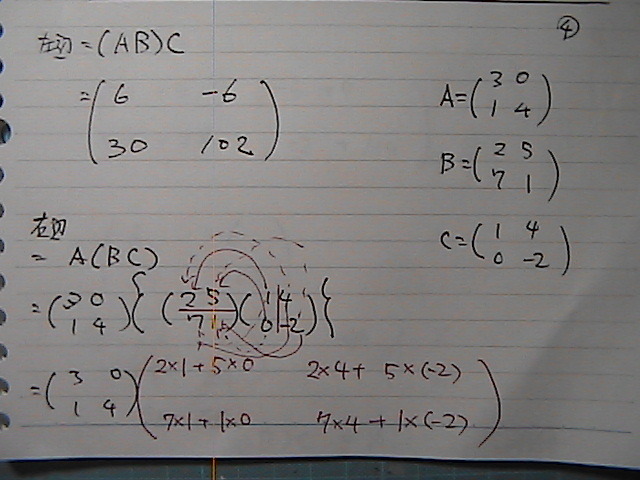 ④
左辺 = (AB)C
= ( 6 -6
30 102 )
A = ( 3 0
1 4 )
B = ( 2 5
7 1 )
C = ( 1 4
0 -2 )
右辺
= A(BC)
= ( 3 0
1 4 ) { ( 2 5
7 1 ) ( 1 4
0 -2 ) }
= ( 3 0
1 4 ) ( 2×1+5×0 2×4+5×(-2)
7×1+1×0 7×4+1×(-2) )